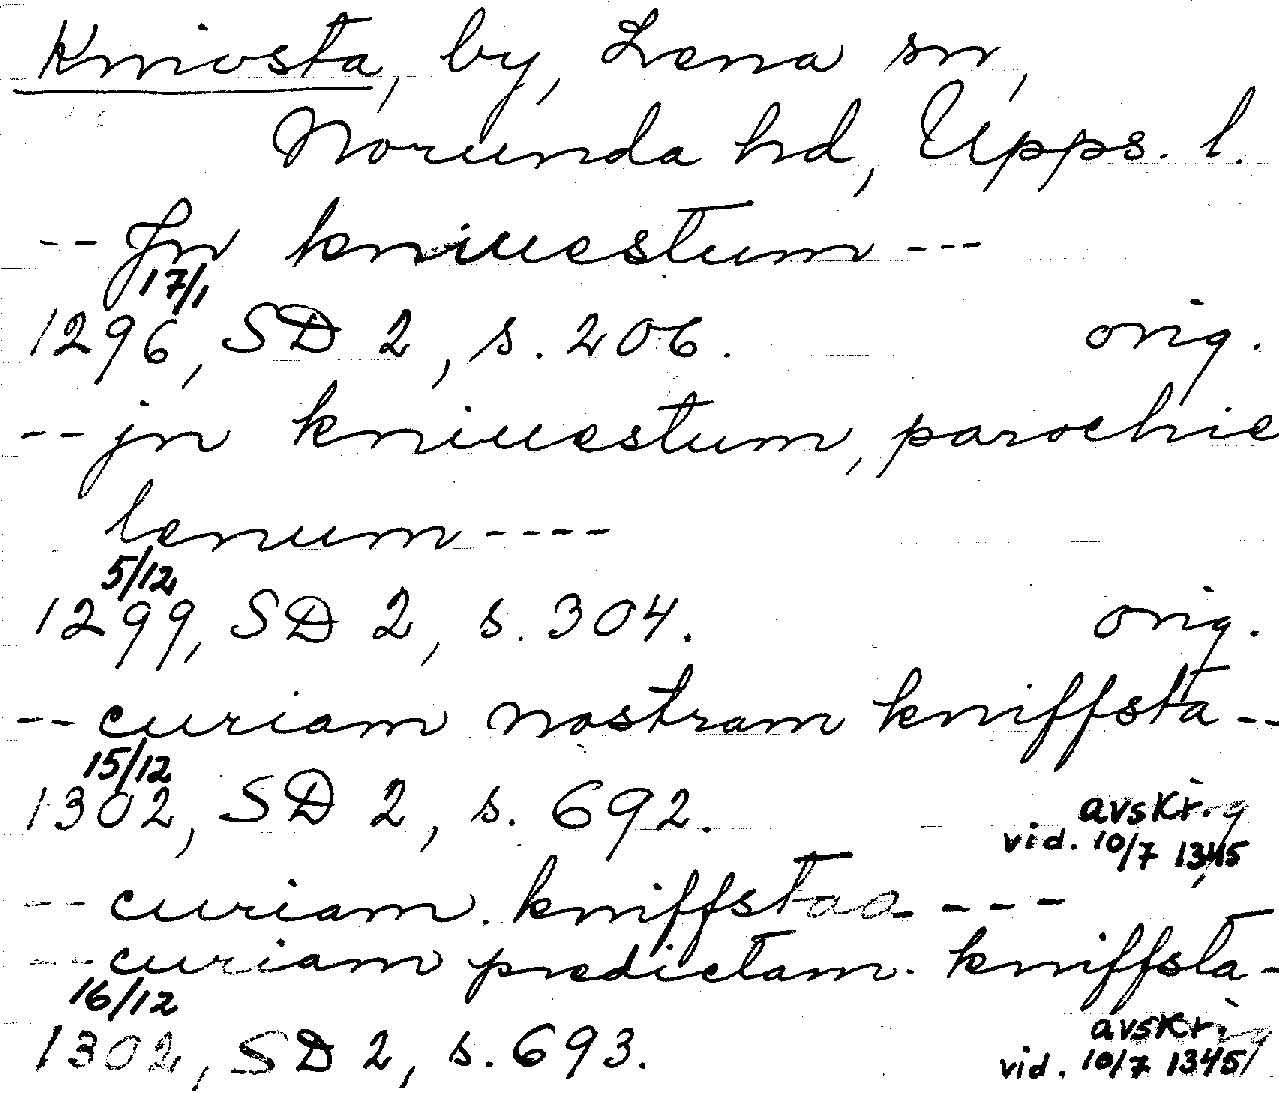 Knivsta, by, Lena sn,
Norunda hd, Upps. l.
-- Jn kniuestum ---
17/1
1296, SD 2, s. 206. orig.
-- jn kniuestum, parochie
lenum ----
5/12
1299, SD 2, s. 304. orig.
-- curiam nostram kniffsta --
15/12
1302, SD 2, s. 692. avskr.
vid. 10/7 1345
-- curiam. kniffstaa ----
-- curiam predictam. kniffsta -
16/12
1302, SD 2, s. 693. avskr.
vid. 10/7 1345